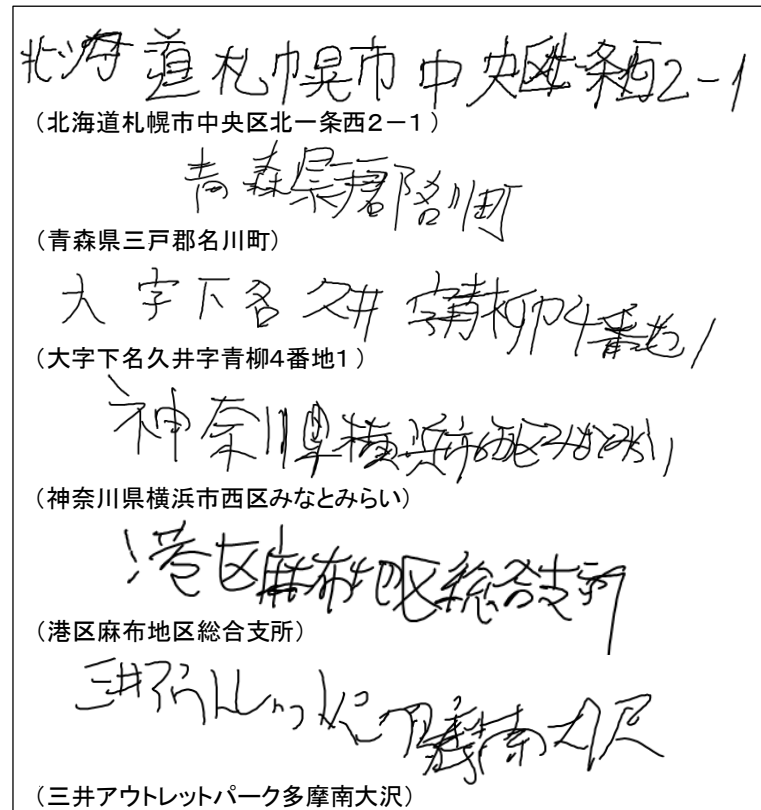 北海道札幌市中央区北一条西2-1
（北海道札幌市中央区北一条西２－１）
青森県三戸郡名川町
（青森県三戸郡名川町）
大字下名久井字青柳4番地1
（大字下名久井字青柳4番地1）
神奈川県横浜市西区みなとみらい
（神奈川県横浜市西区みなとみらい）
港区麻布地区総合支所
（港区麻布地区総合支所）
三井アウトレットパーク多摩南大沢
（三井アウトレットパーク多摩南大沢）